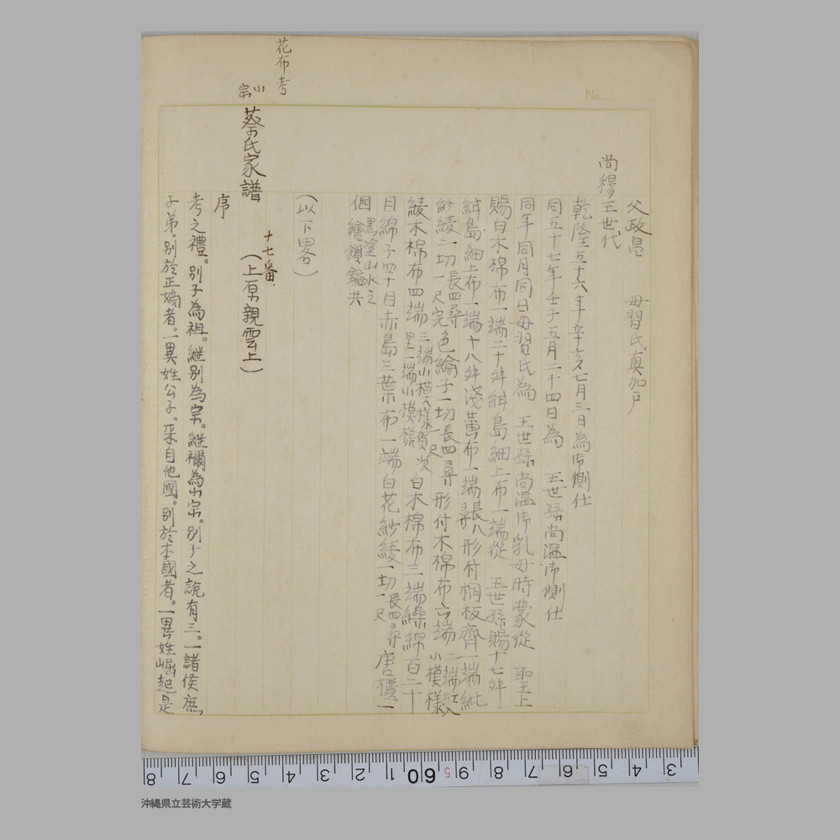 父政昌　毋習氏真加戸
尚穆王世代
乾隆五十六年辛亥七月三日為御側仕
同五十七年壬子五月二十四日為　王世孫尚温御側仕
同年同月同日毋習氏為　王世孫尚温御乳母時蒙従　聖上
賜白木棉布一端二十舛絣島細上布一端従　王世孫賜十七舛
絣島細上布一端十八舛浅黄布一端長八尋形付桐板齊一端紕
紗綾一切長四尋一尺完色綸子一切長四尋一尺形付木棉布六端二端紅入小模様
綾木棉布四端三端小模様賀次黒一端小模様白木棉布三端繰綿百二十
目綿子四十目赤島三葉布一端白花紗綾一切長四尋一尺唐櫃一
個黒塗山水之繪鎖鎰共
(以下畧)
花布考
小宗
蔡氏家譜
十七番.
(上原親雲上)
序
考之禮。別子為祖。継別為宗。継禰為小宗。別子之說有三。一諸侯庶
子弟。別於正嫡者。一異姓公子。来自他國。別於本國者。一異姓崛起是
No.
8 7 6 5 4 3 2 1 60 9 8 7 6 5 4 3
沖縄県立芸術大学蔵